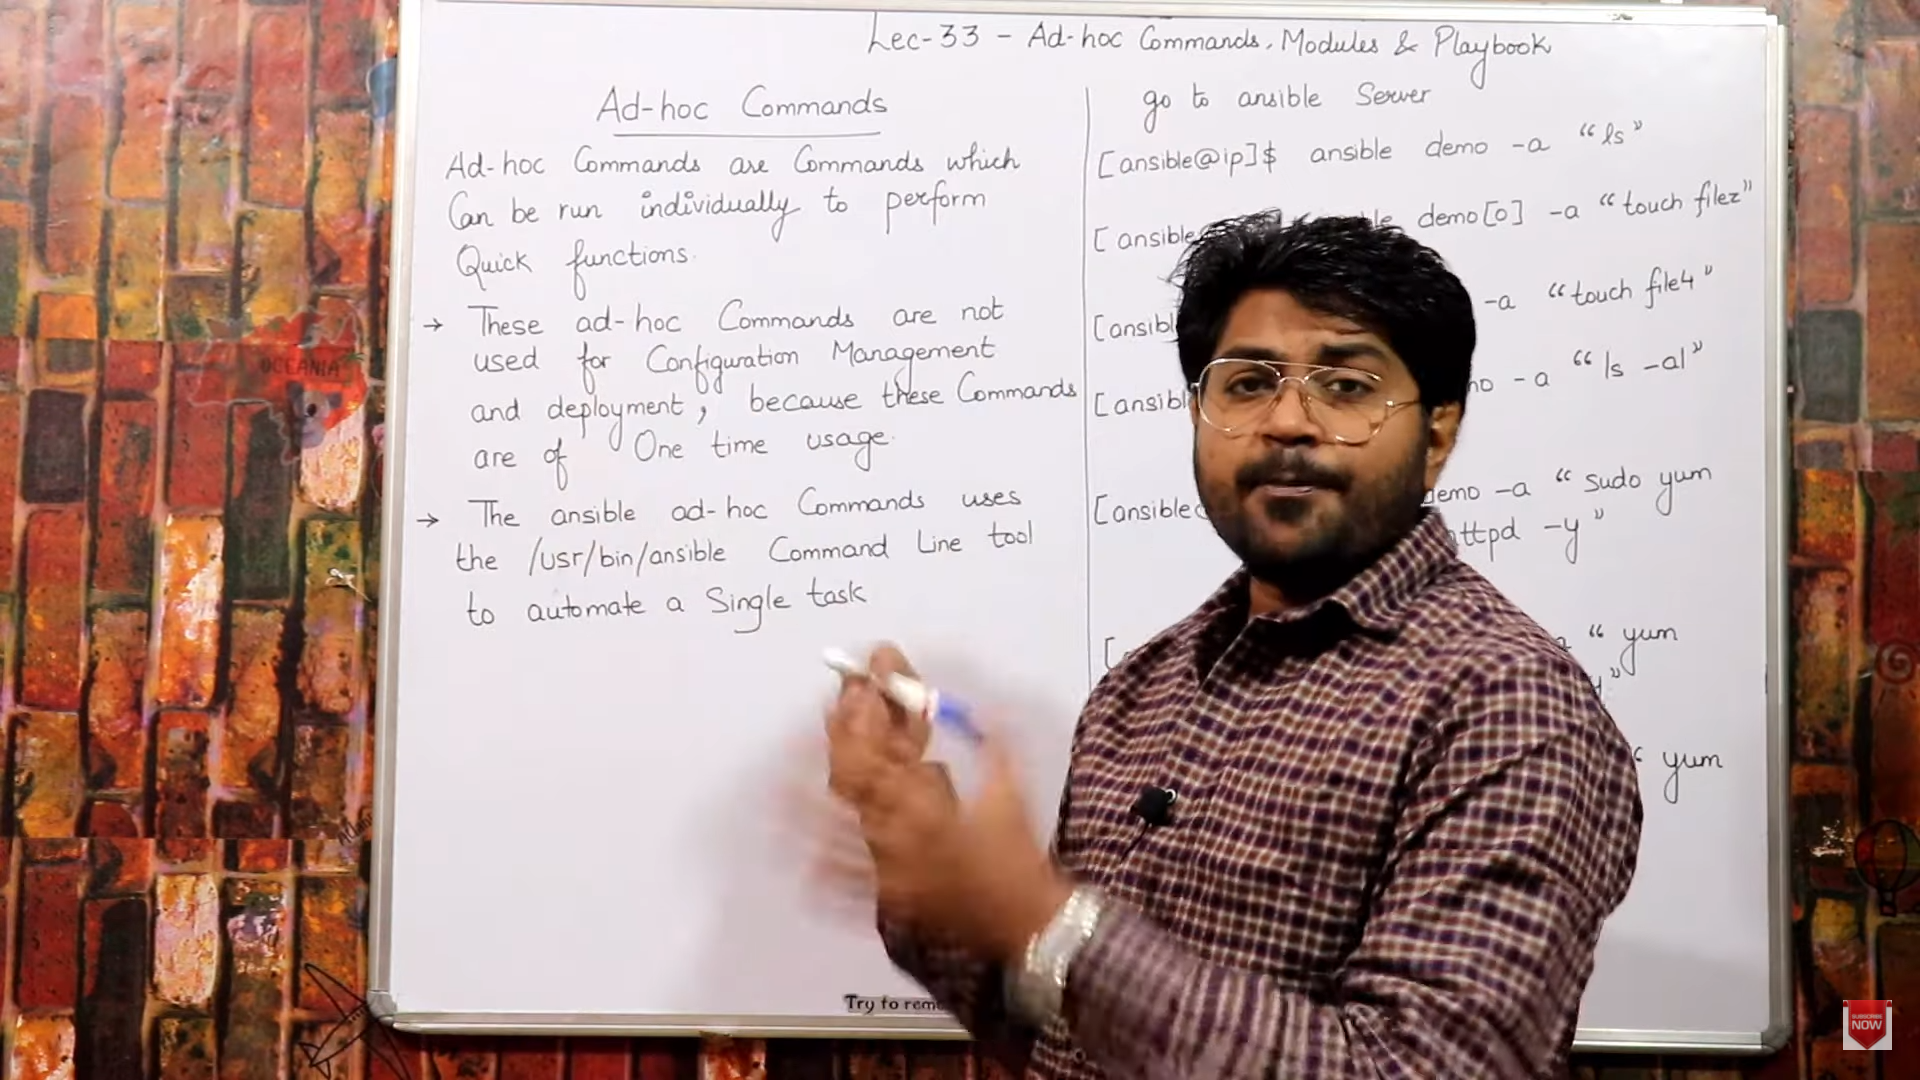 Lec-33 - Ad-hoc Commands, Modules & Playbook
Ad-hoc Commands
Ad-hoc Commands are Commands which
Can be run individually to perform
Quick functions.
→ These ad-hoc Commands are not
used for Configuration Management
and deployment, because these Commands
are of One time usage.
→ The ansible ad-hoc Commands uses
the /usr/bin/ansible Command Line tool
to automate a Single task
go to ansible Server
[ansible@ip]$ ansible demo -a "ls"
[ansible demo[0] -a "touch filez"
-a "touch file4"
-a "ls -al"
[ansible demo -a "sudo yum
httpd -y"
" yum
yum
Try to
OCEANIA
SUBSCRIBE
NOW